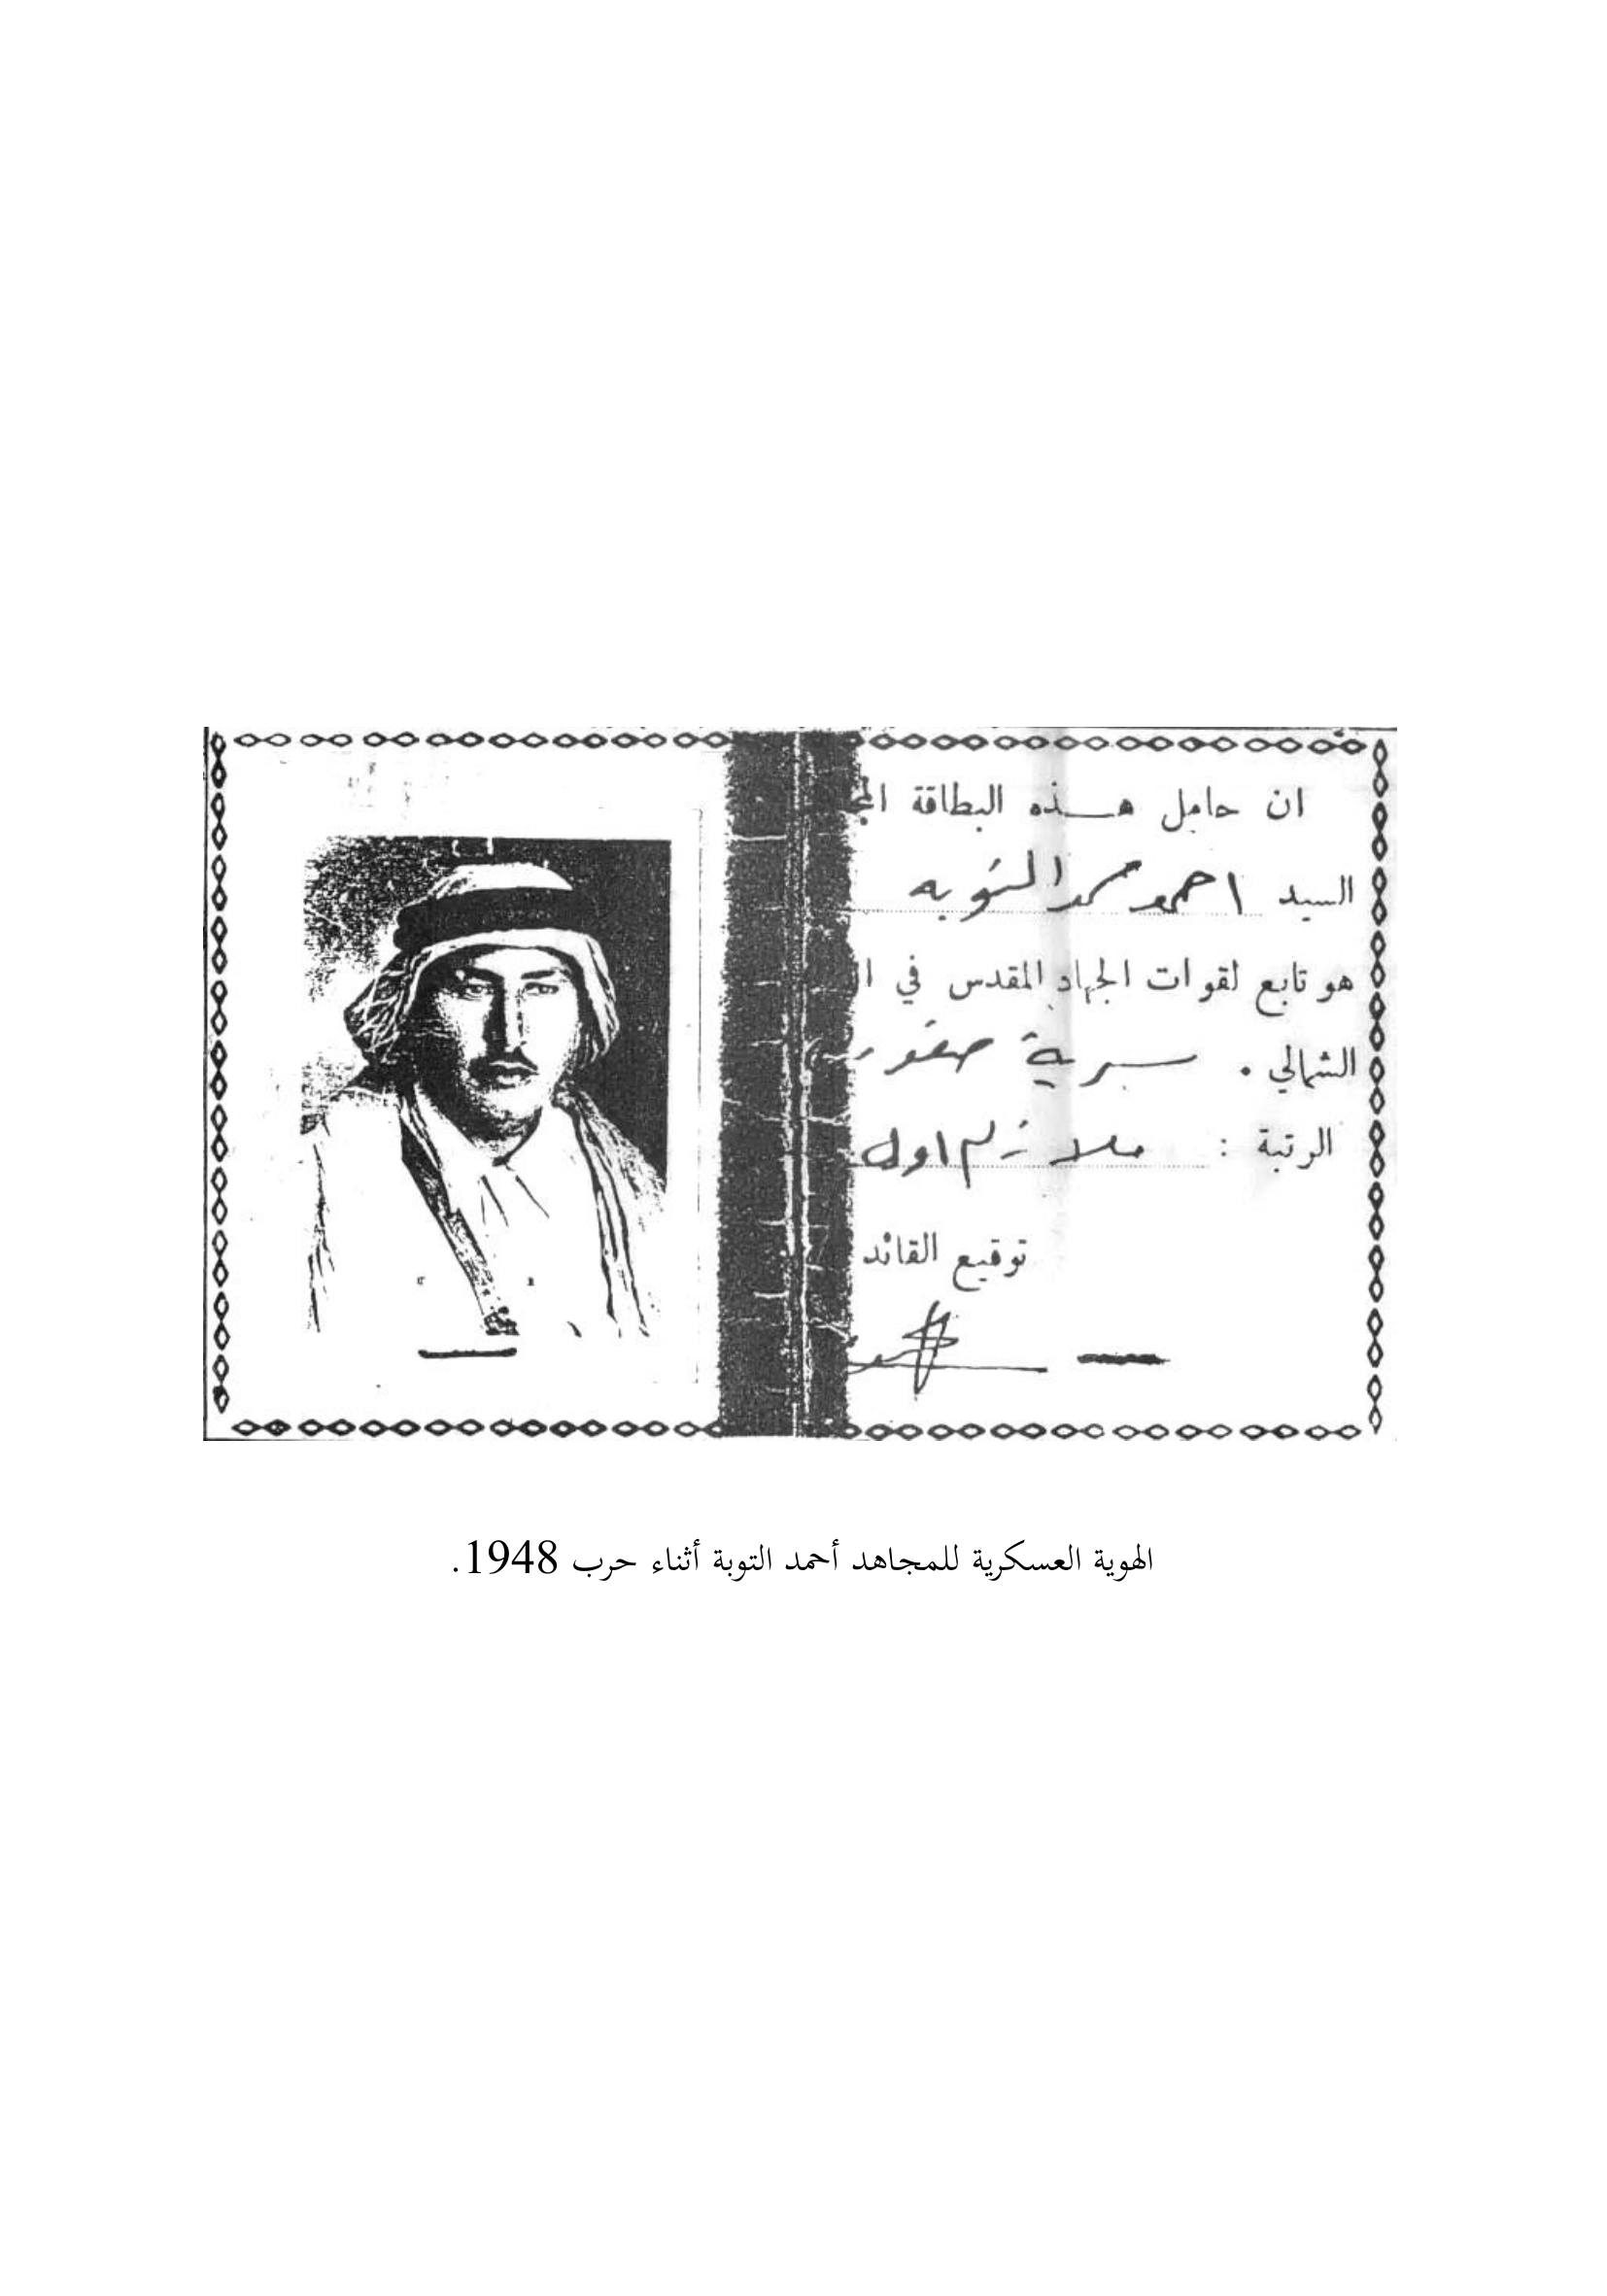 ان حامل هــذه البطاقة
السيد احمد محمد التوبه
هو تابع لقوات الجهاد المقدس في
الشمالي . سرية
الرتبة : ملازم اول
توقيع القائد
الهوية العسكرية للمجاهد أحمد التوبة أثناء حرب 1948.